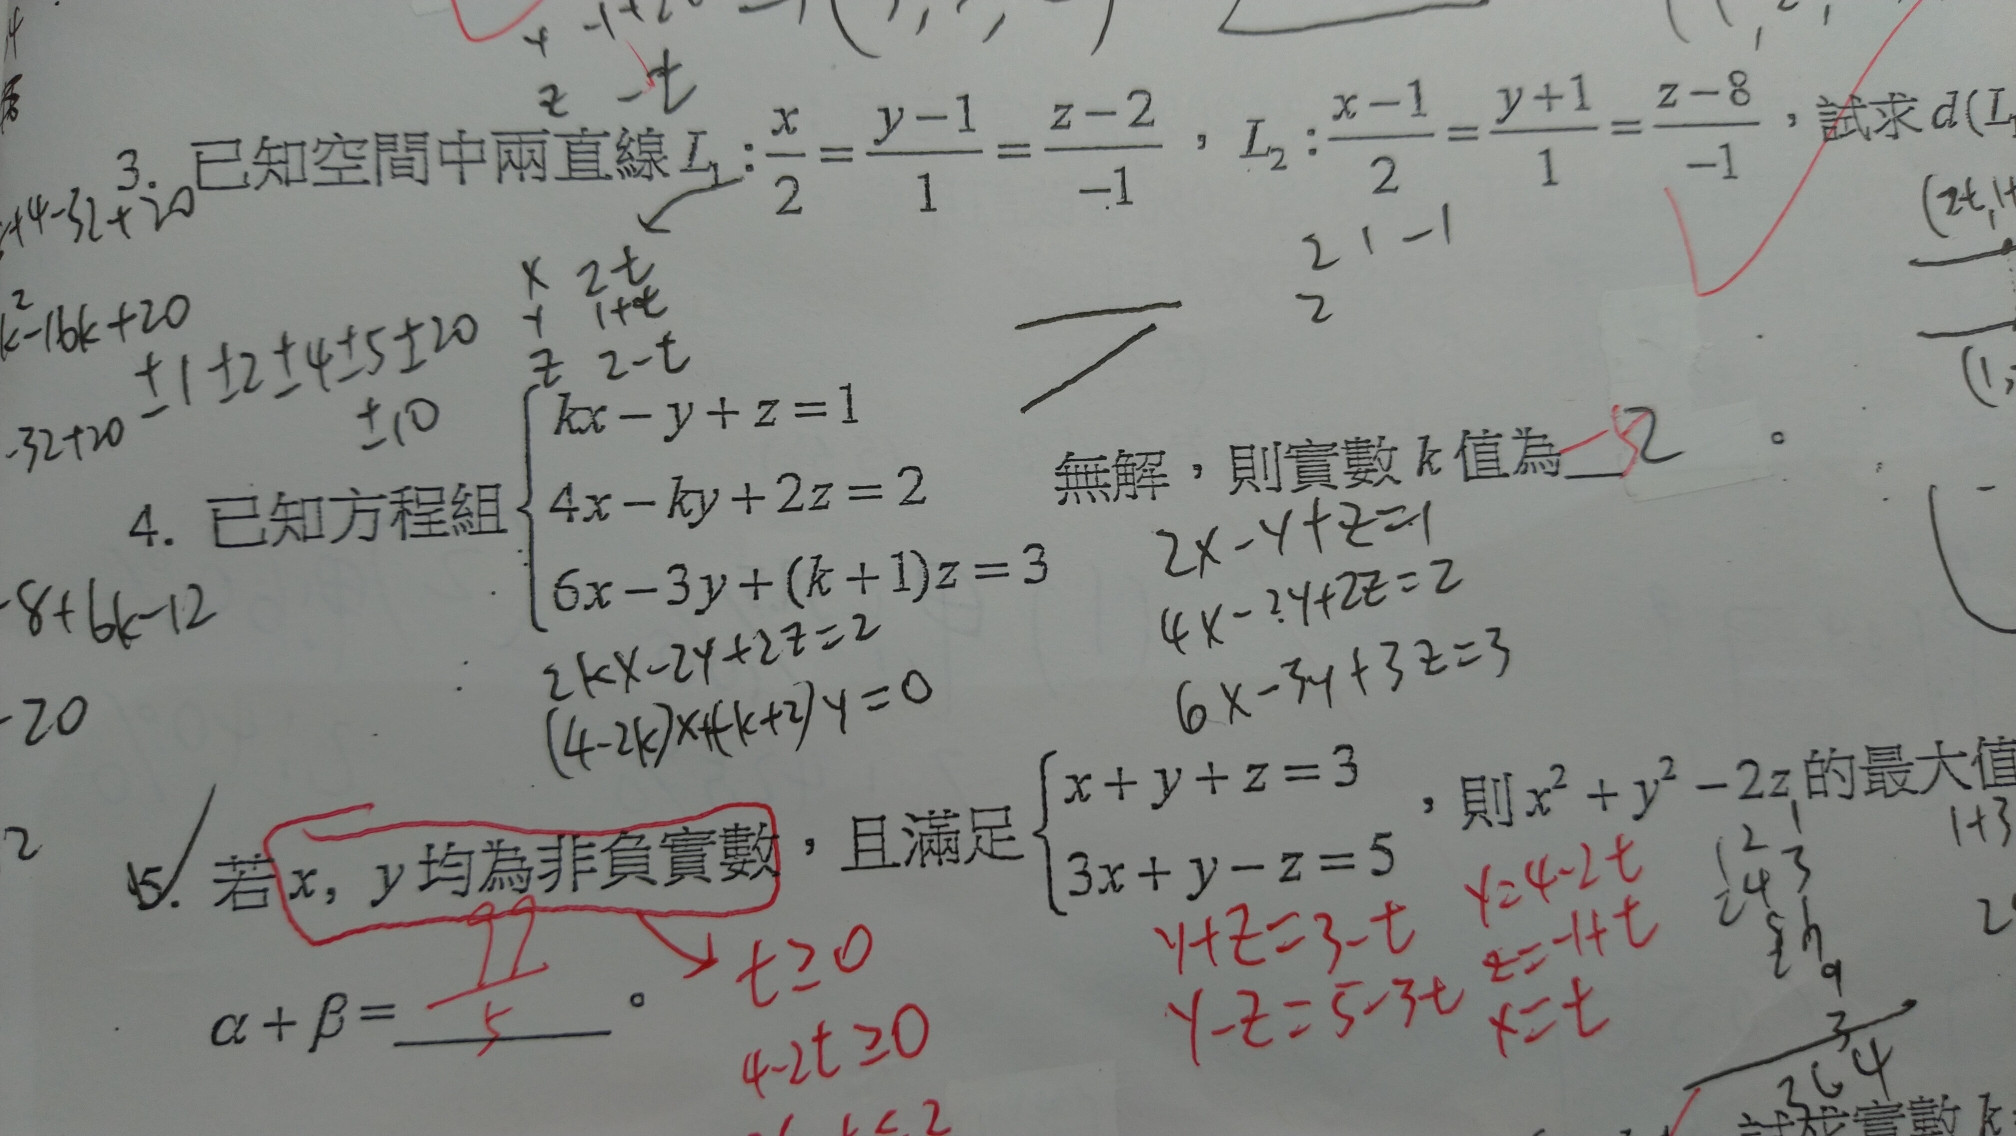 z -t
3. 已知空間中兩直線 L₁ : x/2 = (y-1)/1 = (z-2)/-1 , L₂ : (x-1)/2 = (y+1)/1 = (z-8)/-1 , 試求 d(L
+4-32+20
(2t, 1+
x 2t
y 1+t
z 2-t
2 1 -1
2
k²-16k+20
±1 ±2 ±4 ±5 ±20
±10
-32+20
(1,
kx - y + z = 1
4. 已知方程組 4x - ky + 2z = 2 無解,則實數 k 值為 -5 2 。
6x - 3y + (k + 1)z = 3
2x-y+z=1
4x-2y+2z=2
6x-3y+3z=3
-8+6k-12
2kx-2y+2z=2
(4-2k)x+(-k+2)y=0
-20
2
x + y + z = 3
5. 若 x, y 均為非負實數,且滿足 ,則 x² + y² - 2z 的最大值
3x + y - z = 5
1+3
y+z=3-t
y-z=5-3t
y=4-2t
z=-1+t
x=t
α + β = 99/5 。
t≥0
4-2t≥0
364
試求實數 k